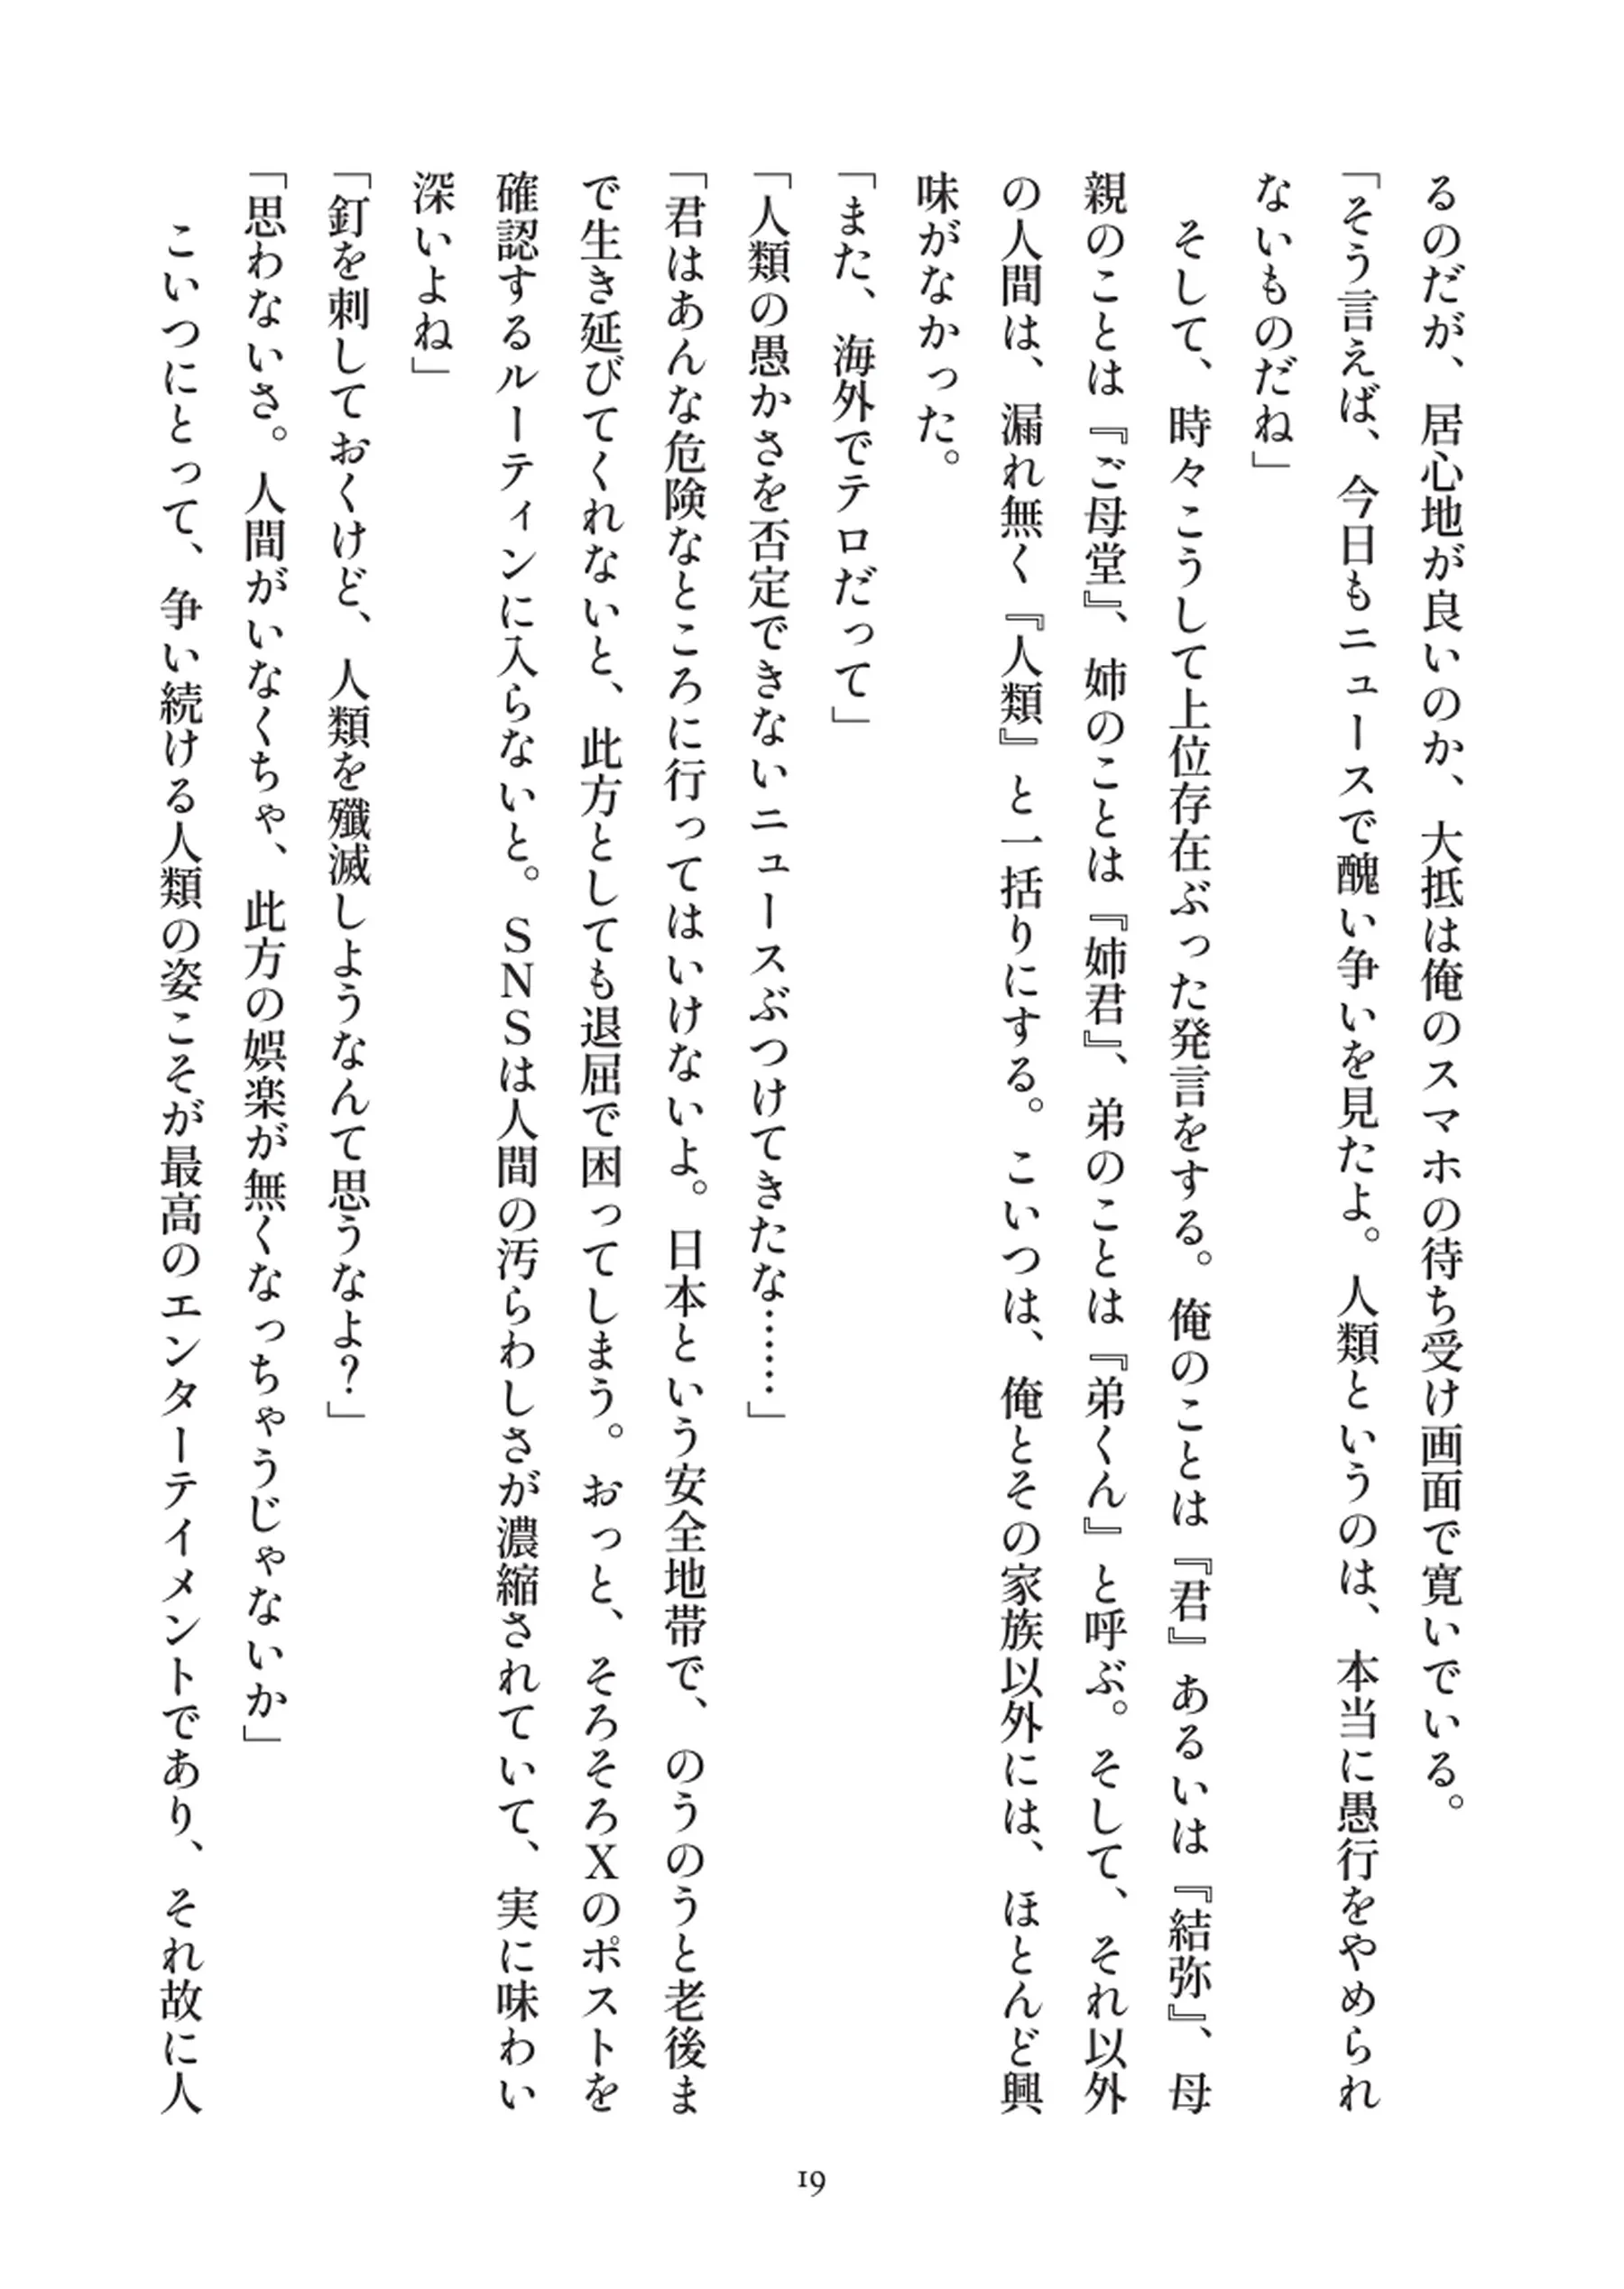 るのだが、居心地が良いのか、大抵は俺のスマホの待ち受け画面で寛いでいる。
「そう言えば、今日もニュースで醜い争いを見たよ。人類というのは、本当に愚行をやめられ
ないものだね」
　そして、時々こうして上位存在ぶった発言をする。俺のことは『君』あるいは『結弥』、母
親のことは『ご母堂』、姉のことは『姉君』、弟のことは『弟くん』と呼ぶ。そして、それ以外
の人間は、漏れ無く『人類』と一括りにする。こいつは、俺とその家族以外には、ほとんど興
味がなかった。
「また、海外でテロだって」
「人類の愚かさを否定できないニュースぶつけてきたな……」
「君はあんな危険なところに行ってはいけないよ。日本という安全地帯で、のうのうと老後ま
で生き延びてくれないと、此方としても退屈で困ってしまう。おっと、そろそろXのポストを
確認するルーティンに入らないと。SNSは人間の汚らわしさが濃縮されていて、実に味わい
深いよね」
「釘を刺しておくけど、人類を殲滅しようなんて思うなよ？」
「思わないさ。人間がいなくちゃ、此方の娯楽が無くなっちゃうじゃないか」
　こいつにとって、争い続ける人類の姿こそが最高のエンターテイメントであり、それ故に人
19